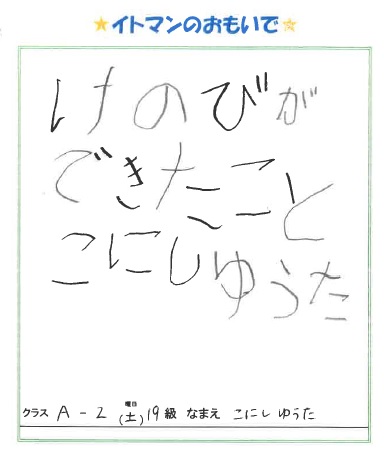 ★イトマンのおもいで★
けのびが
できたこと
こにしゆうた
クラス A-2 曜日(土) 19級 なまえ こにしゆうた